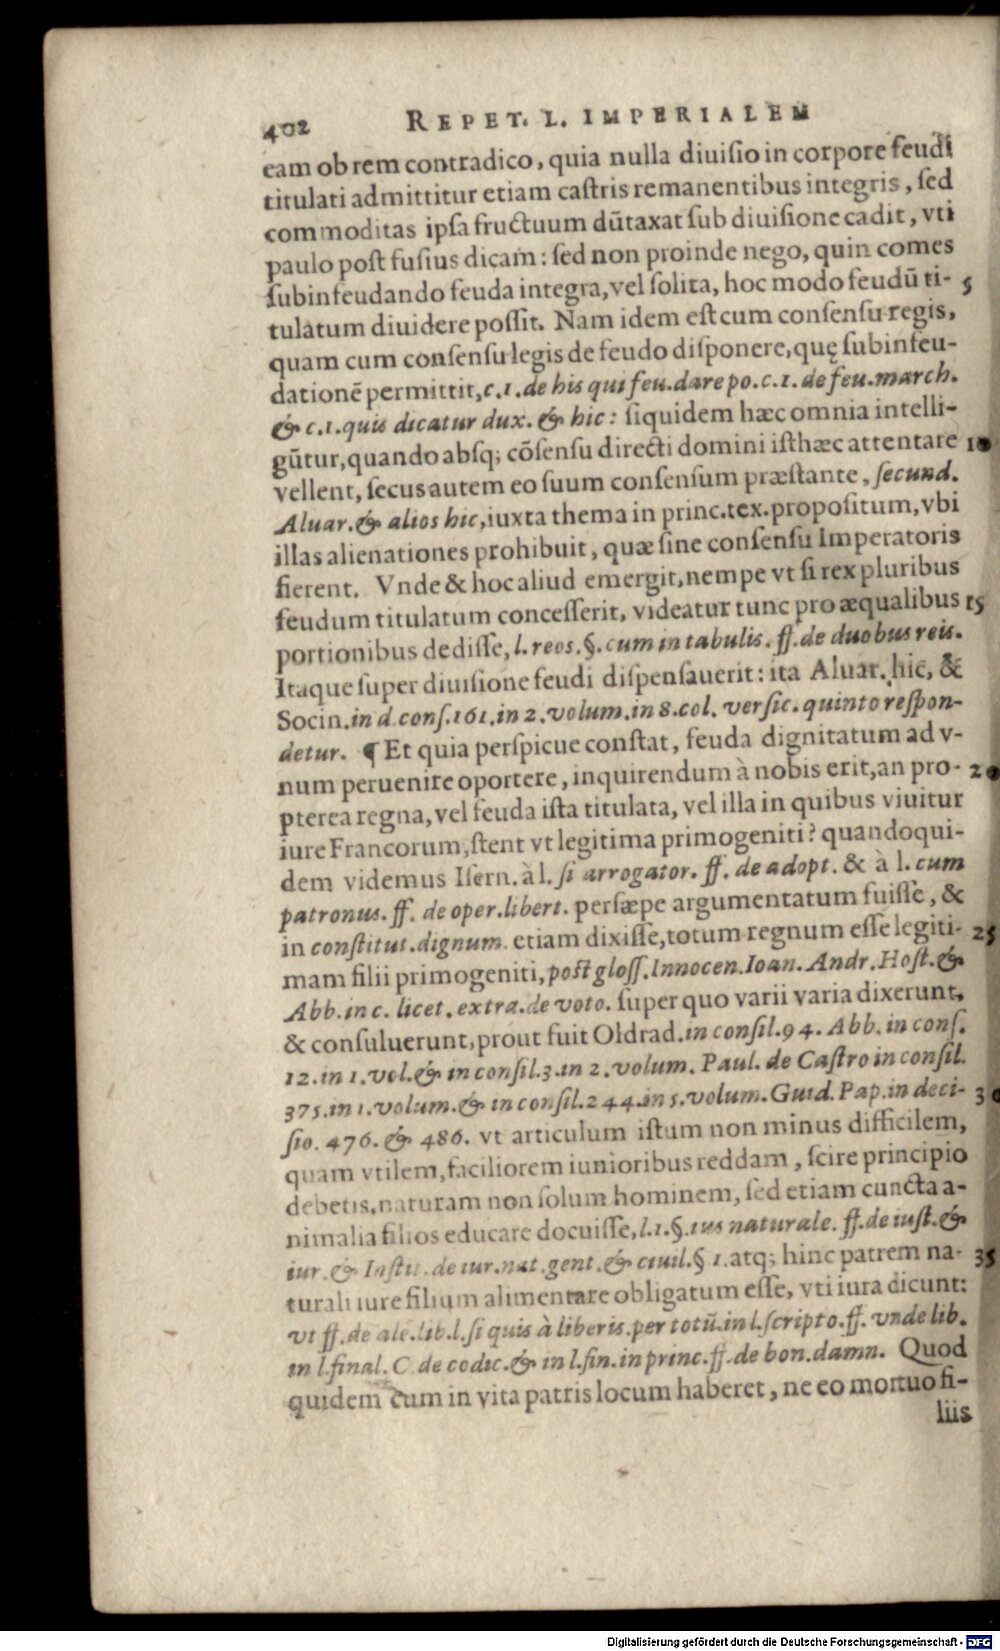 402 REPET. L. IMPERIALEM
eam ob rem contradico, quia nulla diuisio in corpore feudi
titulati admittitur etiam castris remanentibus integris, sed
commoditas ipsa fructuum dūtaxat sub diuisione cadit, vti
paulo post fusius dicam: sed non proinde nego, quin comes
subinfeudando feuda integra, vel solita, hoc modo feudū ti- 5
tulatum diuidere possit. Nam idem est cum consensu regis,
quam cum consensu legis de feudo disponere, quę subinfeu-
dationē permittit, c.1. de his qui feu. dare po. c.1. de feu. march.
& c.1. quis dicatur dux. & hic: siquidem hæc omnia intelli-
gūtur, quando absq; cōsensu directi domini isthæc attentare 10
vellent, secus autem eo suum consensum præstante, secund.
Aluar. & alios hic, iuxta thema in princ. tex. propositum, vbi
illas alienationes prohibuit, quæ sine consensu Imperatoris
fierent. Vnde & hoc aliud emergit, nempe vt si rex pluribus
feudum titulatum concesserit, videatur tunc pro æqualibus 15
portionibus dedisse, l. reos. §. cum in tabulis. ff. de duobus reis.
Itaque super diuisione feudi dispensauerit: ita Aluar. hic, &
Socin. in d. cons. 161. in 2. volum. in 8. col. versic. quinto respon-
detur. ¶ Et quia perspicue constat, feuda dignitatum ad v-
num peruenire oportere, inquirendum à nobis erit, an pro- 20
pterea regna, vel feuda ista titulata, vel illa in quibus viuitur
iure Francorum, stent vt legitima primogeniti? quandoqui-
dem videmus Isern. à l. si arrogator. ff. de adopt. & à l. cum
patronus. ff. de oper. libert. persæpe argumentatum fuisse, &
in constitut. dignum. etiam dixisse, totum regnum esse legiti- 25
mam filii primogeniti, post gloss. Innocen. Ioan. Andr. Host. &
Abb. in c. licet. extra. de voto. super quo varii varia dixerunt,
& consuluerunt, prout fuit Oldrad. in consil. 94. Abb. in cons.
12. in 1. vol. & in consil. 3. in 2. volum. Paul. de Castro in consil.
375. in 1. volum. & in consil. 244. in 5. volum. Guid. Pap. in deci- 30
sio. 476. & 486. vt articulum istum non minus difficilem,
quam vtilem, faciliorem iunioribus reddam, scire principio
debetis, naturam non solum hominem, sed etiam cuncta a-
nimalia filios educare docuisse, l.1. §. ius naturale. ff. de iust. &
iur. & Instit. de iur. nat. gent. & ciuil. § 1. atq; hinc patrem na- 35
turali iure filium alimentare obligatum esse, vti iura dicunt:
vt ff. de ale. lib. l. si quis à liberis. per totū. in l. scripto. ff. vnde lib.
in l. final. C. de codic. & in l. fin. in princ. ff. de bon. damn. Quod
quidem cum in vita patris locum haberet, ne eo mortuo fi-
liis
Digitalisierung gefördert durch die Deutsche Forschungsgemeinschaft - DFG